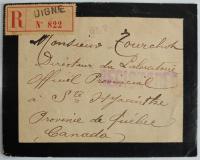 R DIGNE
N° 822
Monsieur Tourchot
Directeur du Laboratoire
Officiel Provincial
à Ste Hyacinthe
Province de Québec
Canada